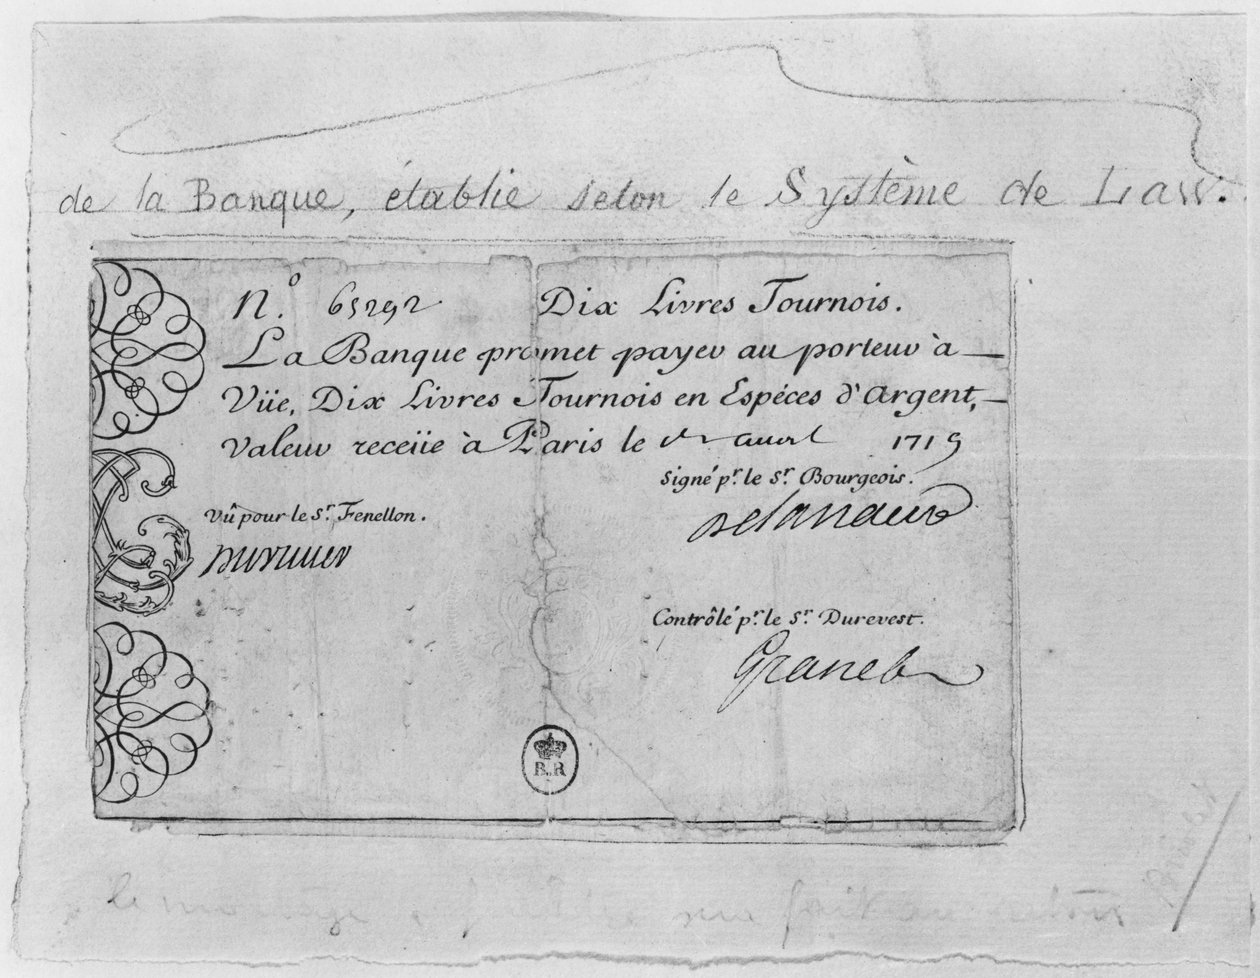 de la Banque, établie selon le Système de Law.
N.º 65292 Dix Livres Tournois.
La Banque promet payer au porteur à
Vüe, Dix Livres Tournois en Espéces d'Argent,
valeur receüe à Paris le avril 1719
Signé p.r le S.r Bourgeois.
Delanauve
Vû pour le S.r Fenellon.
Contrôlé p.r le S.r Durevest.
Granet
B.R
le montage